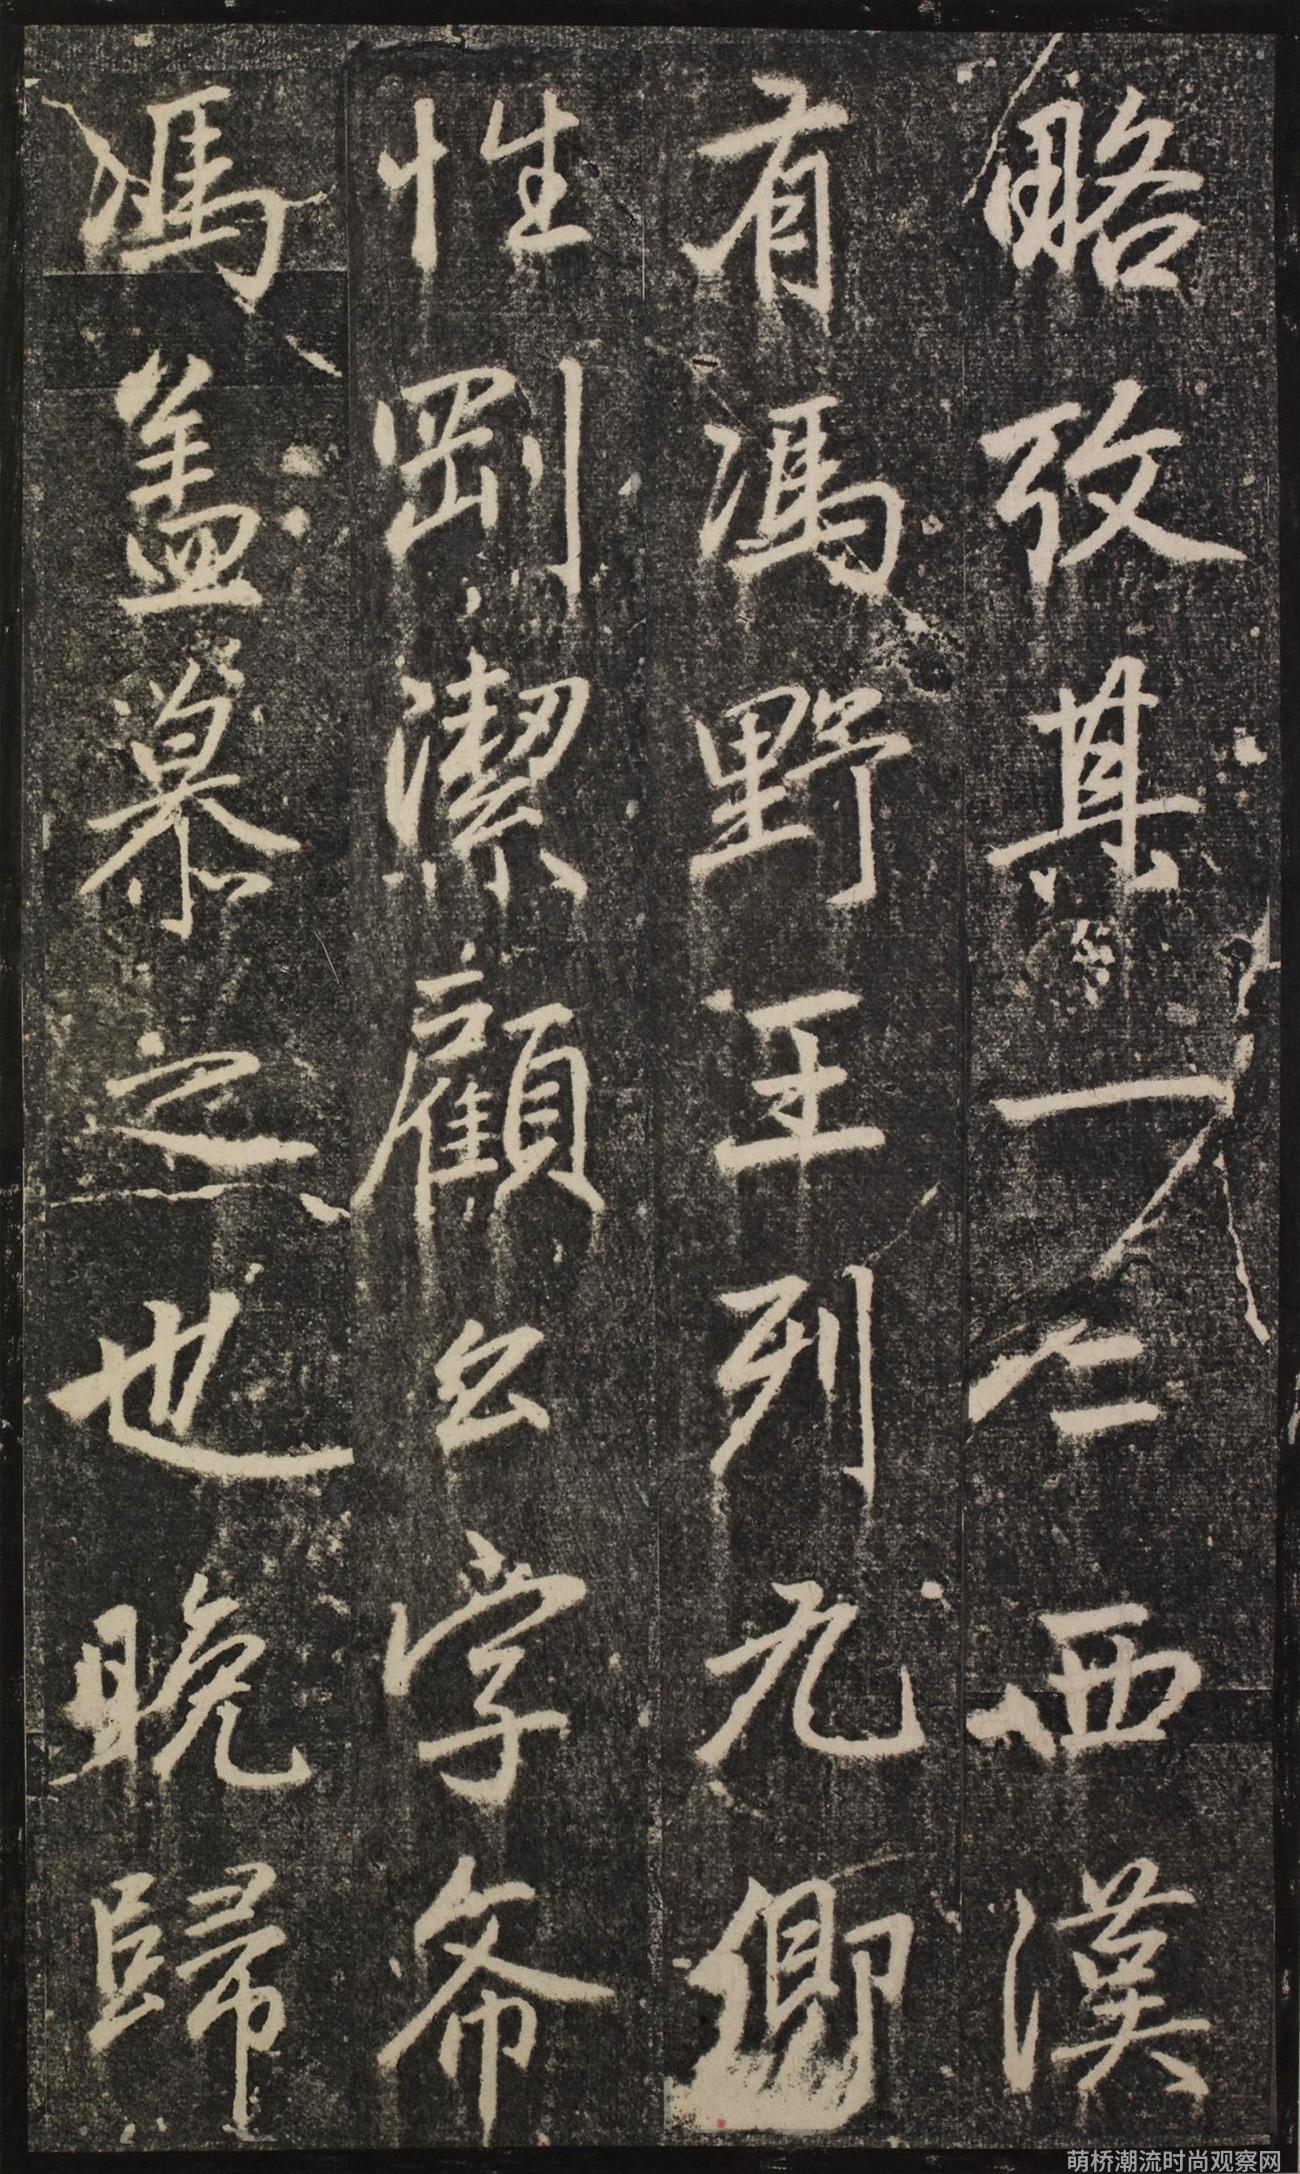 略攷其一二西漢
有馮野王列九卿
性剛潔顧公字希
馮盖慕之也晚歸
萌桥潮流时尚观察网